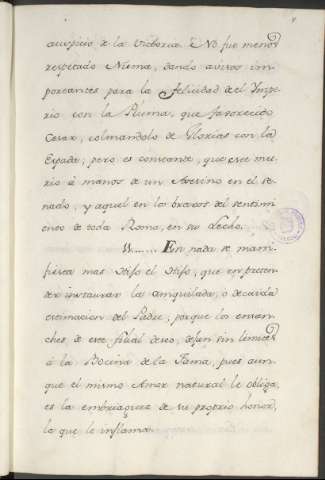 auspicio de la Victoria. No fue menos
respetado Numa, dando avisos im
portantes para la felicidad de el Ympe
rio con la Pluma, que favorecido
Cesar, colmandolo de Glorias con la
Espada; pero es constante, que este mu
rio à manos de un Asesino en el Se
nado, y aquel en los brazos del sentimi
ento de toda Roma, en su Lecho.
En nada se mani
fiesta mas Hijo el Hijo, que en preten
der instaurar la aniquilada, o decaida
estimacion del Padre; porque los ensan
ches de este filial deseo, dejan sin limites
à la Bocina de la Fama, pues aun
que el mismo Amor natural le obliga,
es la embriaguez de su proprio honor,
la que le inflama.